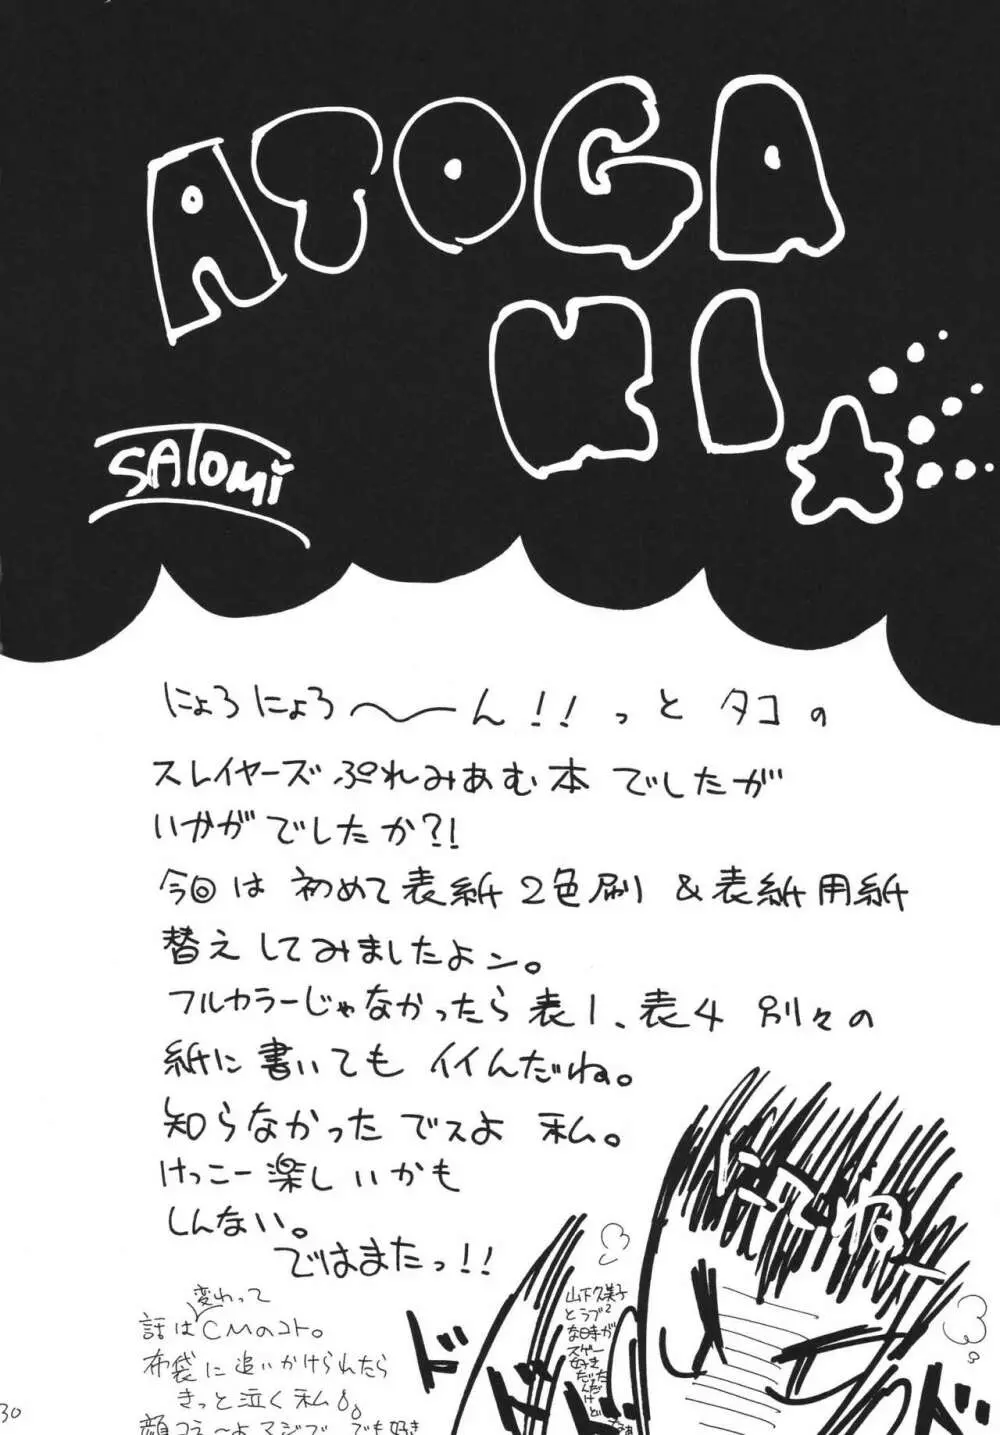 ATOGA
KI
SATOMI
にょろにょろ〜〜ん!! っと タコの
スレイヤーズぷれみあむ本 でしたが
いかがでしたか?!
今回は 初めて表紙2色刷 &表紙用紙
替えしてみましたよン。
フルカラーじゃなかったら 表1、表4 別々の
紙に書いても イイんだね。
知らなかったでスよ 私。
けっこー楽しいかも
しんない。
ではまたっ!!
変わって
話はCMのコト。
布袋に追いかけられたら
きっと泣く私。
顔コえ〜よマジで でも好き
にてねー
山下久美子
とラブ2
な時が
スゲー
好き
だった
んだ
けど
ドド
30